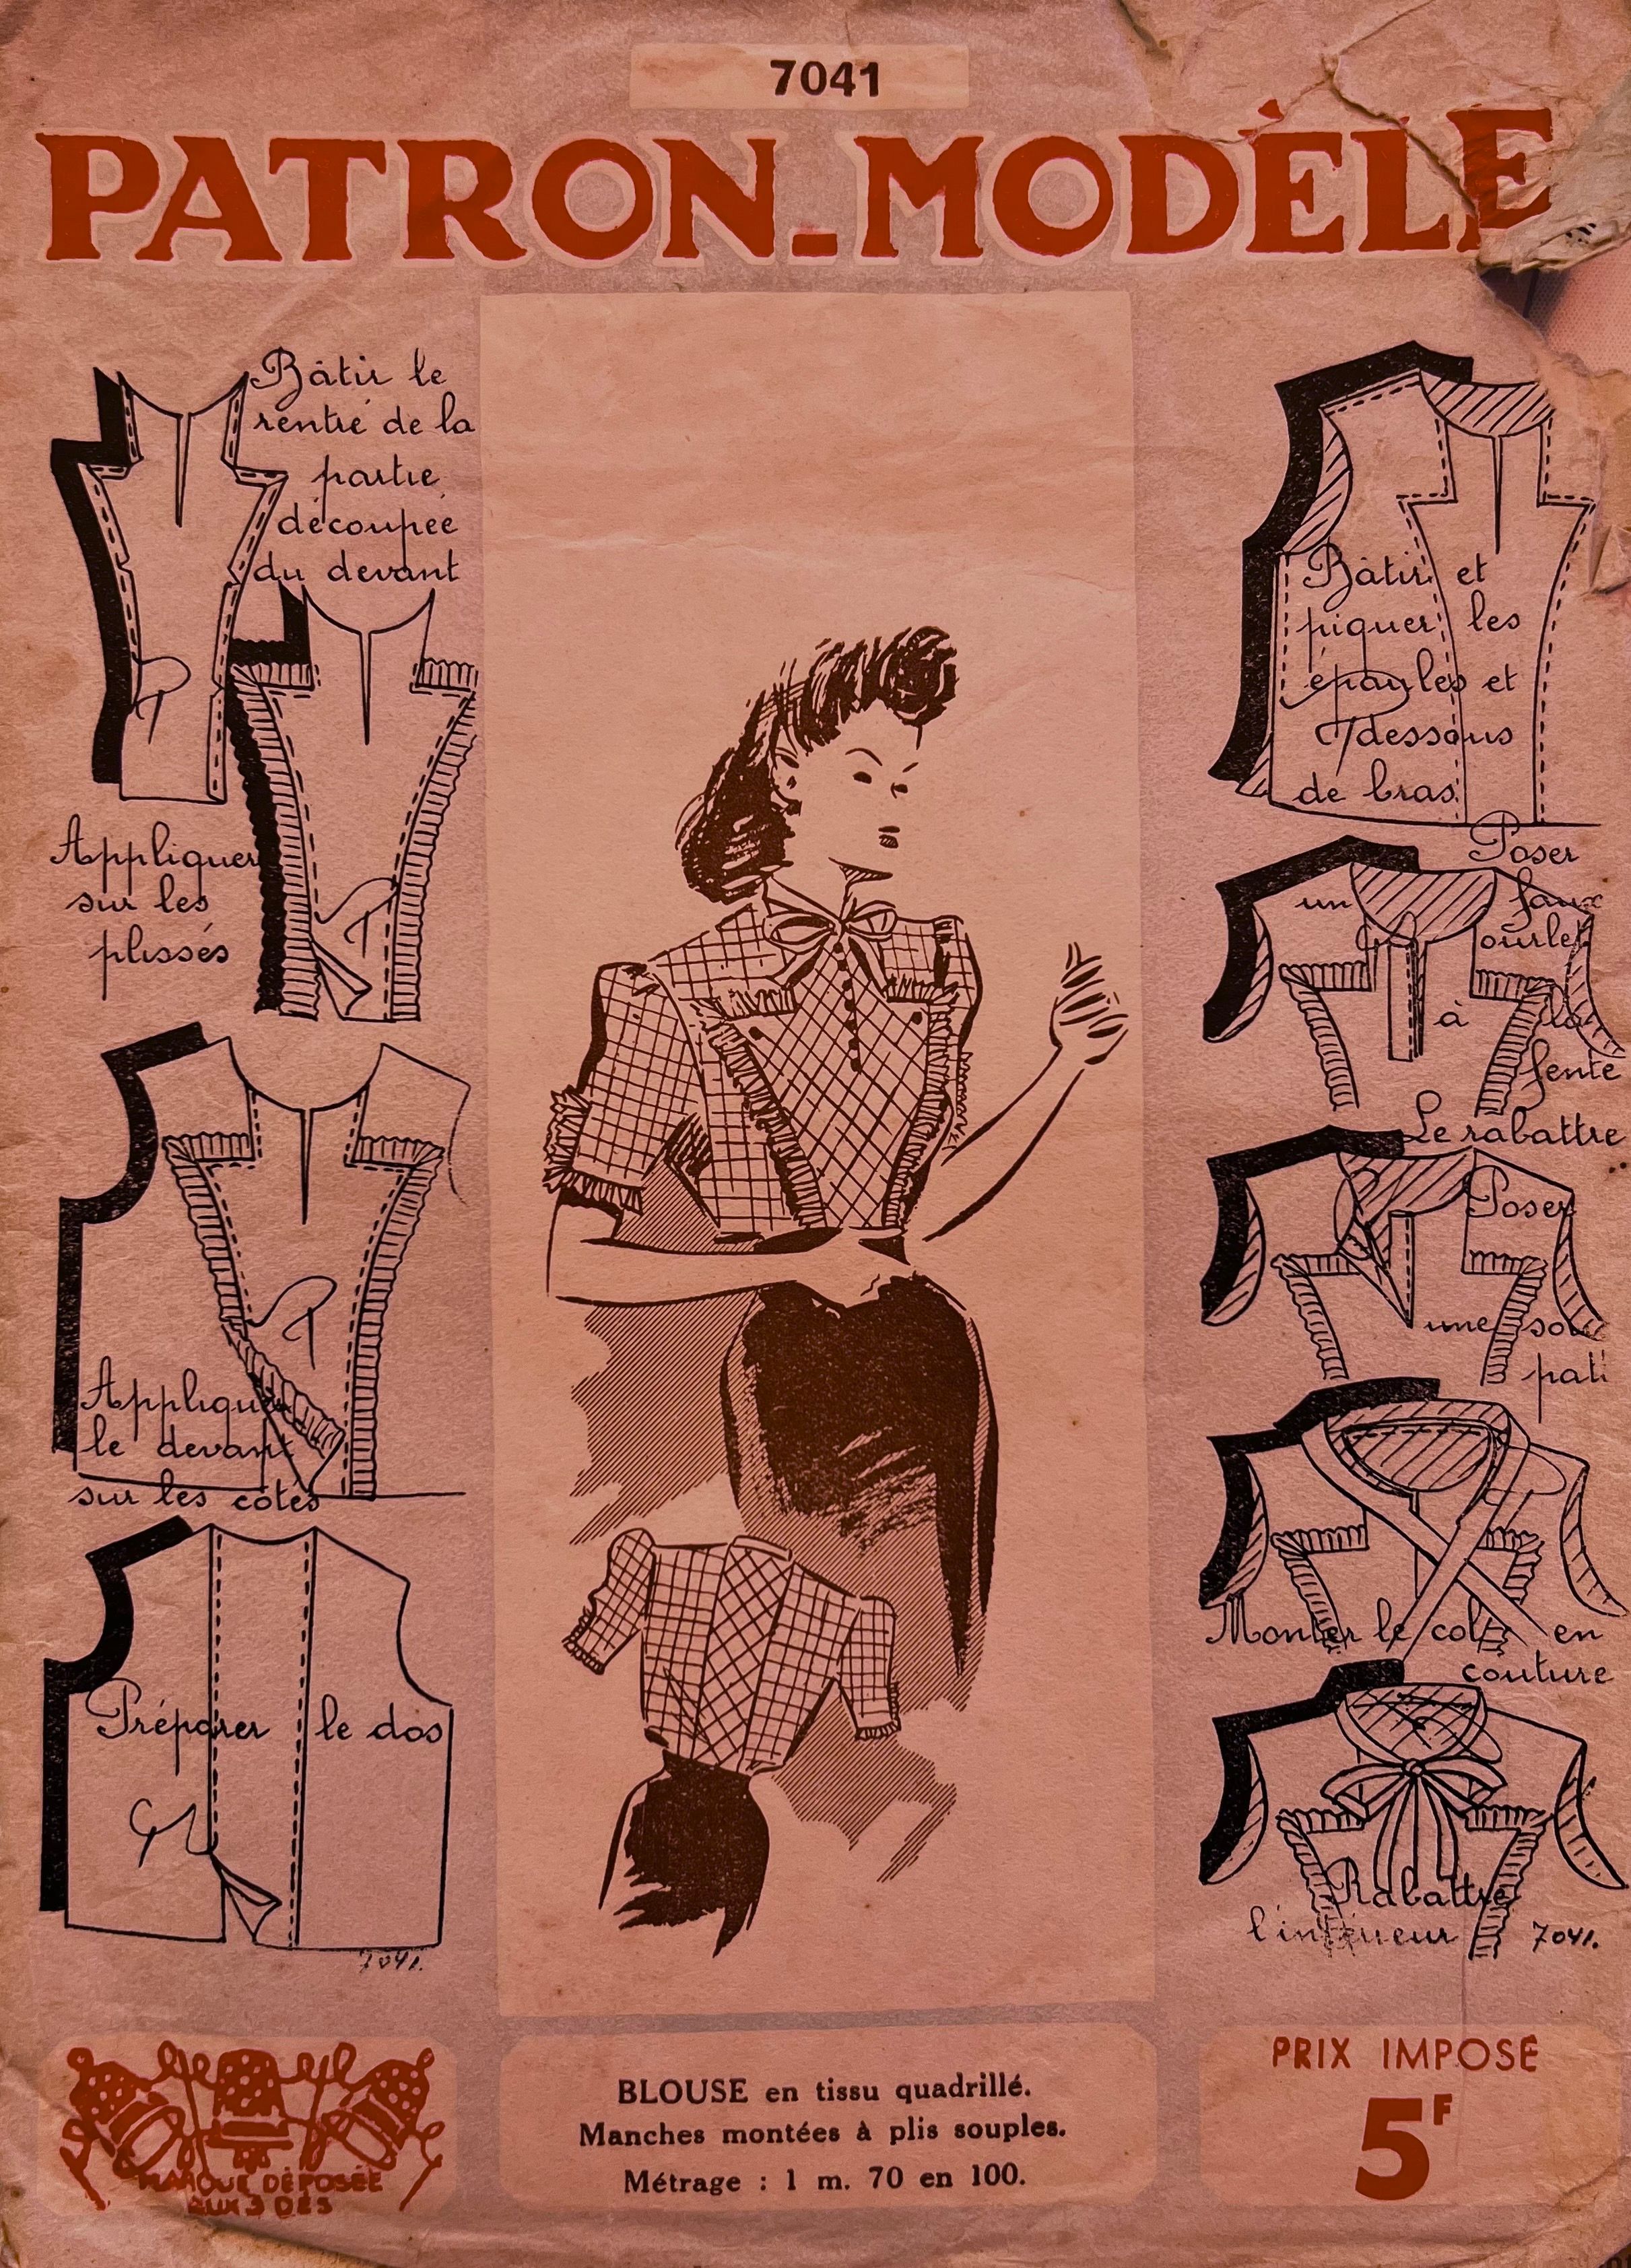 7041
PATRON-MODÈLE
Bâtir le
rentré de la
partie
découpée
du devant
Appliquer
sur les
plissés
Appliquer
le devant
sur les côtés
Préparer le dos
7041.
Bâtir et
piquer les
épaules et
dessous
de bras
Poser
un faux
ourlet
à la
fente
Le rabattre
Poser
une
Monter le col en
couture
Rabattre
l'intérieur 7041.
MARQUE DÉPOSÉE
AUX 3 DÉS
BLOUSE en tissu quadrillé.
Manches montées à plis souples.
Métrage : 1 m. 70 en 100.
PRIX IMPOSÉ
5F